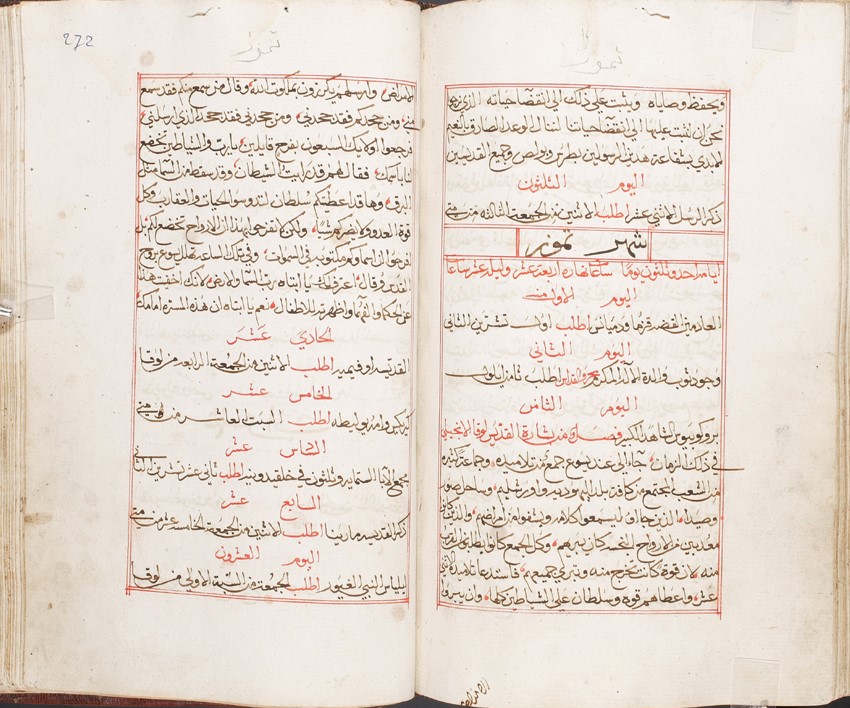 تموز
ويحفظ وصاياه ويثبت علي ذلك الي انقضا حياته الذي نرجو
نحن ان نثبت عليها الي انقضا حياتنا لننال الوعد الصادق بالنعيم
الابدي بشفاعة هدين الرسولين بطرس وبولص وجميع القديسين
اليوم الثلثون
ذكر الرسل الاثني عشر اطلب الاثنين من الجمعة الثالثة من متي
شهر تموز
ايامه احد وثلثون يوما ساعات نهاره اربعة عشر وليله عشر ساعات
اليوم الاول منه
العادمين الفضه قزما ودميانس اطلب اول تشرين الثاني
اليوم الثاني
وجود ثوب والدة الاله المكرم اطلب ثامن ايلول
اليوم الثامن
بروكوبيوس الشاهد الكبير فصل من بشارة القديس لوقا الانجيلي
في ذلك الزمان جاء الي عند يسوع جمع من تلاميده وجماعة كثيره
من الشعب المجتمع من كافة بلد اليهوديه واورشليم وساحل صور
وصيدا الذين جاءو ليسمعوا كلامه ويشفوا من امراضهم والذين كانو
معدبين من الارواح النجسه كان يبريهم وكل الجمع كانوا يطلبو القرب
منه لان قوة كانت تخرج منه وتبري جميعهم فاستدعا تلاميده الاثني
عشر واعطاهم قوه وسلطان علي الشياطين كلها وان يبروا
272
تموز
الامراض وارسلهم يكررون بملكوت الله وقال من سمع منكم فقد سمع
مني ومن جحدكم فقد جحدني ومن جحدني فقد جحد الذي ارسلني
فرجعوا اوليك السبعون بفرح قايلين يارب والشياطين تخضع
لنا باسمك فقال لهم قد رايت الشيطان وقد سقط من السما مثل
البرق وها قد اعطيتكم سلطان لتدوسوا الحيات والعقارب وكل
قوة العدو ولا يضركم شيا ولكن لا تفرحوا بهذا ان الارواح تخضع لكم بل
افرحوا ان اسماوكم مكتوبه في السموات وفي تلك الساعة تهلل يسوع بروح
القدس وقال اعترف لك يا ابتاه رب السما والارض لانك اخفيت هذا
عن الحكما والفهما واظهرته للاطفال نعم يا ابتاه ان هذه المسره امامك
الحادي عشر
القديسه اوفيميه اطلب الاثنين من الجمعة الرابعة من لوقا
الخامس عشر
كيركس وامه يوليطه اطلب السبت العاشر من متي
السادس عشر
مجمع الابا الستمايه وثلثون في خلقيدونيه اطلب ثاني عشر تشرين الثاني
السابع عشر
ذكر القديسه مارينا اطلب الاثنين من الجمعة الخامسة عشر من متي
اليوم العشرون
ايلياس النبي الغيور اطلب الجمعة من السبة الاولي من لوقا